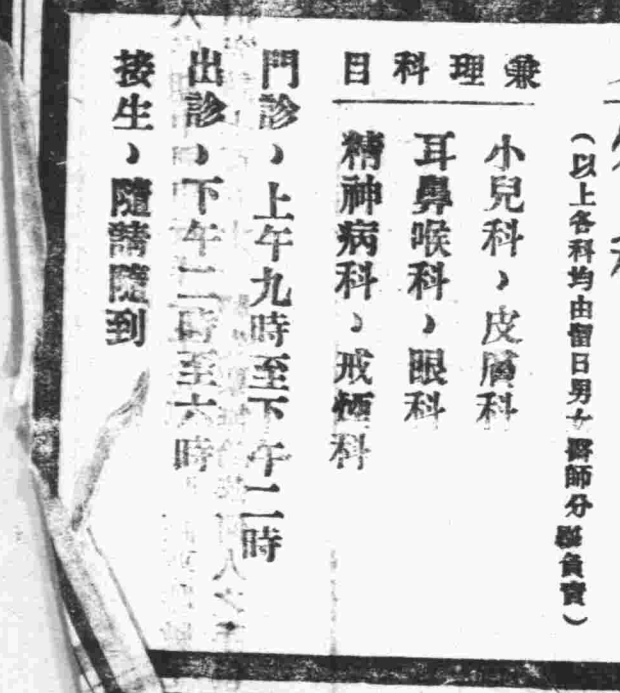 （以上各科均由留日男女醫師分類負責）
兼理科目
小兒科、皮膚科
耳鼻喉科、眼科
精神病科、戒煙科
門診、上午九時至下午二時
出診、下午二時至六時
接生、隨請隨到